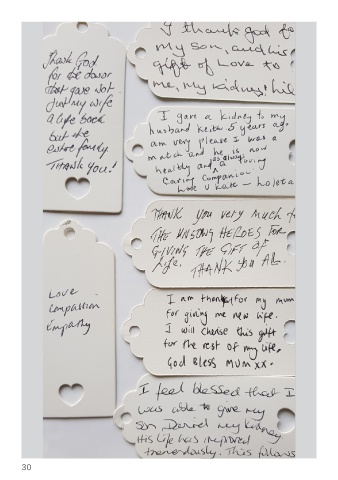 Thank God
for the donor
that gave not
just my wife
a life back
but the
entire family
THANK YOU!
Love
Compassion
Empathy
I thank god fo
my son, and his
gift of Love to
me, my kidney!
I gave a kidney to my
husband Keith 5 years ago
am very please I was a
match and he is now
healthy and as always loving
Caring Companion
Love u Kate –
THANK you very much to
THE UNSONG HEROES FOR
GIVING THE GIFT OF
Life. THANK You ALL.
I am thankful for my mum
for giving me new life.
I will cherise this gift
for the rest of my life.
God Bless Mum xx.
I feel blessed that I
was able to give my
son, Daniel my kidney.
His life has improved
tremendously. This follows
30